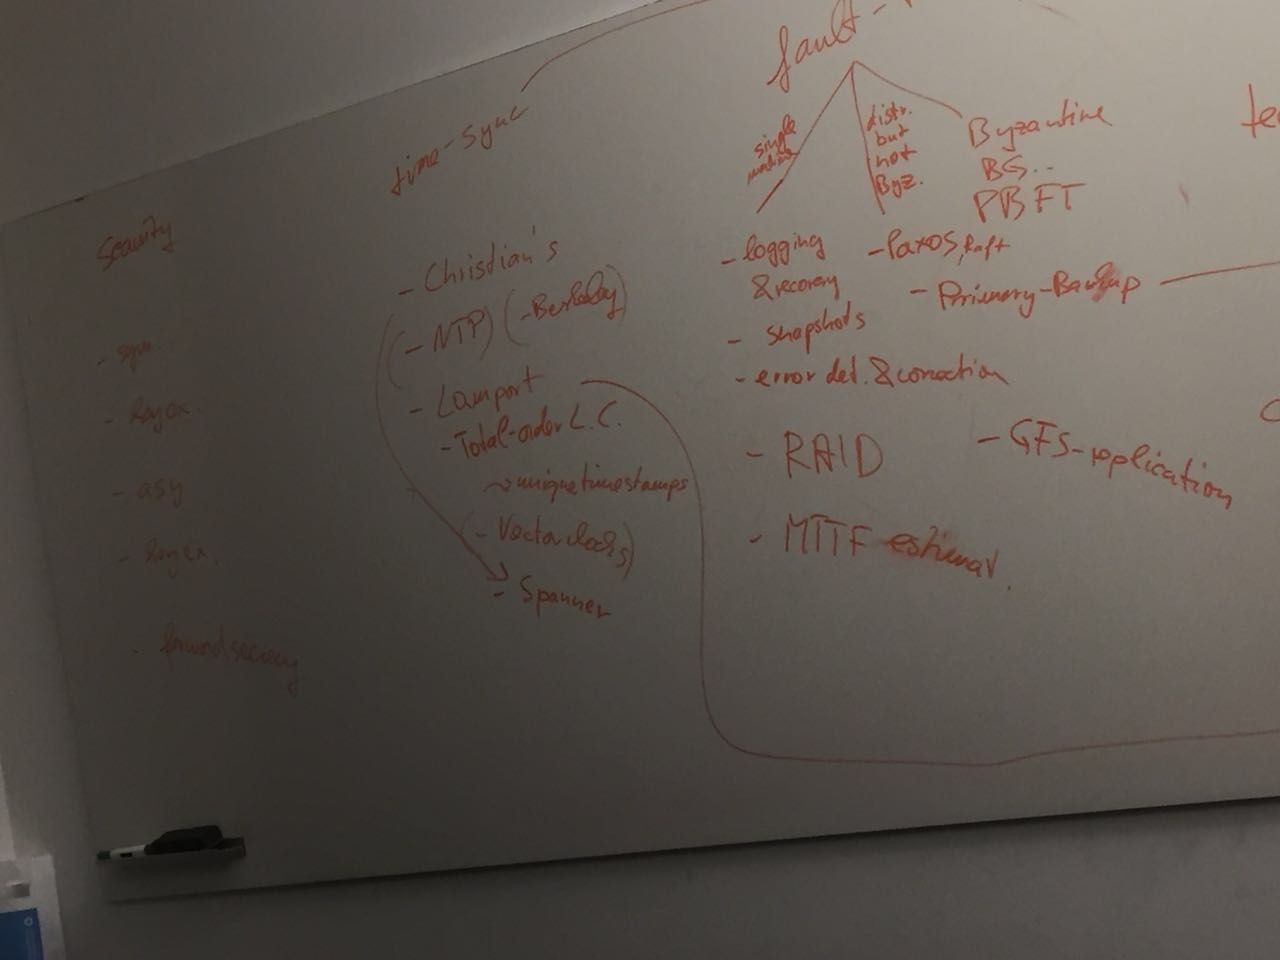 Security
- sym
- asy
time-sync
- Chrisdian's
(- NTP) (-Berkeley)
- Lamport
- Total-order L.C.
~> unique timestamps
(- Vector clocks)
- Spanner
fault-
single
machine
distr.
but
not
Byz.
Byzantine
BG..
PBFT
- logging
& recovery
- snapshots
- error det. & correction
- RAID
- MTTF estimat.
- Paxos, Raft
- Primary-Backup
- GFS-replication